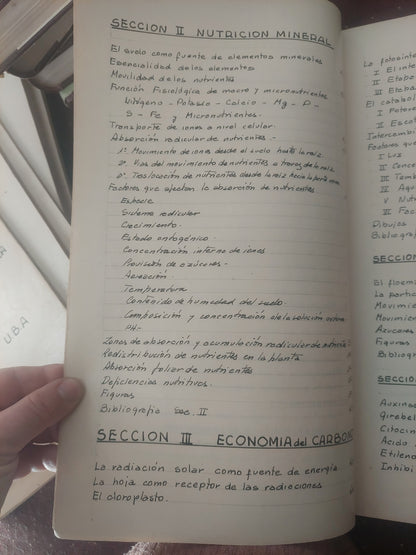 SECCION II NUTRICION MINERAL
El suelo como fuente de elementos minerales
Esencialidad de los elementos
Movilidad de los nutrientes
Función Fisiológica de macro y micronutrientes
Nitógeno - Potasio - Calcio - Mg - P -
S - Fe y Micronutrientes.
Transporte de iones a nivel celular.
Absorción radicular de nutrientes -
1º Movimiento de iones desde el suelo hasta la raíz.
2º Vias del movimiento de nutrientes a traves de la raíz
3º Traslocación de nutrientes desde la raíz hacia la parte aérea
Factores que afectan la absorción de nutrientes
Especie
Sistema radicular
Crecimiento.
Estado ontogénico.
Concentración interna de iones
Provisión de azúcares -
Aereación.
Temperatura
Contenido de humedad del suelo.
Composición y concentración de la solución externa
pH -
Zonas de absorción y acumulación radicular de nutrientes
Redistribución de nutrientes en la planta
Absorción foliar de nutrientes
Deficiencias nutritivas.
Figuras
Bibliografía Sec. II
SECCION III ECONOMIA del CARBONO
La radiación solar como fuente de energía
La hoja como receptor de las radiaciones
El cloroplasto.
La fotosínte
I El inte
II Etapa
III Etapa
El catabol
I Fotore
II Escot
Intercambi
Factores que
I Luz
II Conce
III Temp
IV Agu
V Nutr
VI Fac
Dibujos
Bibliografí
SECCION
El floem
La partic
Movimie
Movimien
Azucare
Figuras
Bibliogr
SECCIO
Auxinas
Gibereli
Citocin
Acido
Etileno
Inhibi
UBA